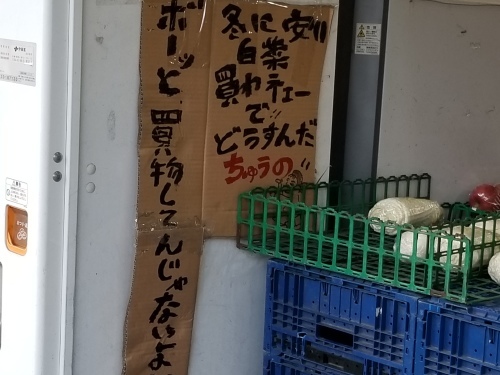 ボーッと買物してんじゃないよ
冬に安い
白菜
買わテェー
で
どうすんだ
ちゅうの